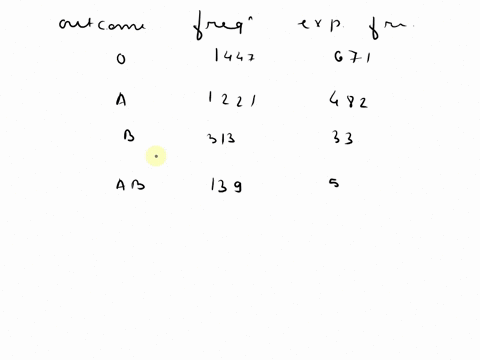 outcome freqⁿ exp. fr.
O 1447 671
A 1221 482
B 313 33
AB 139 5